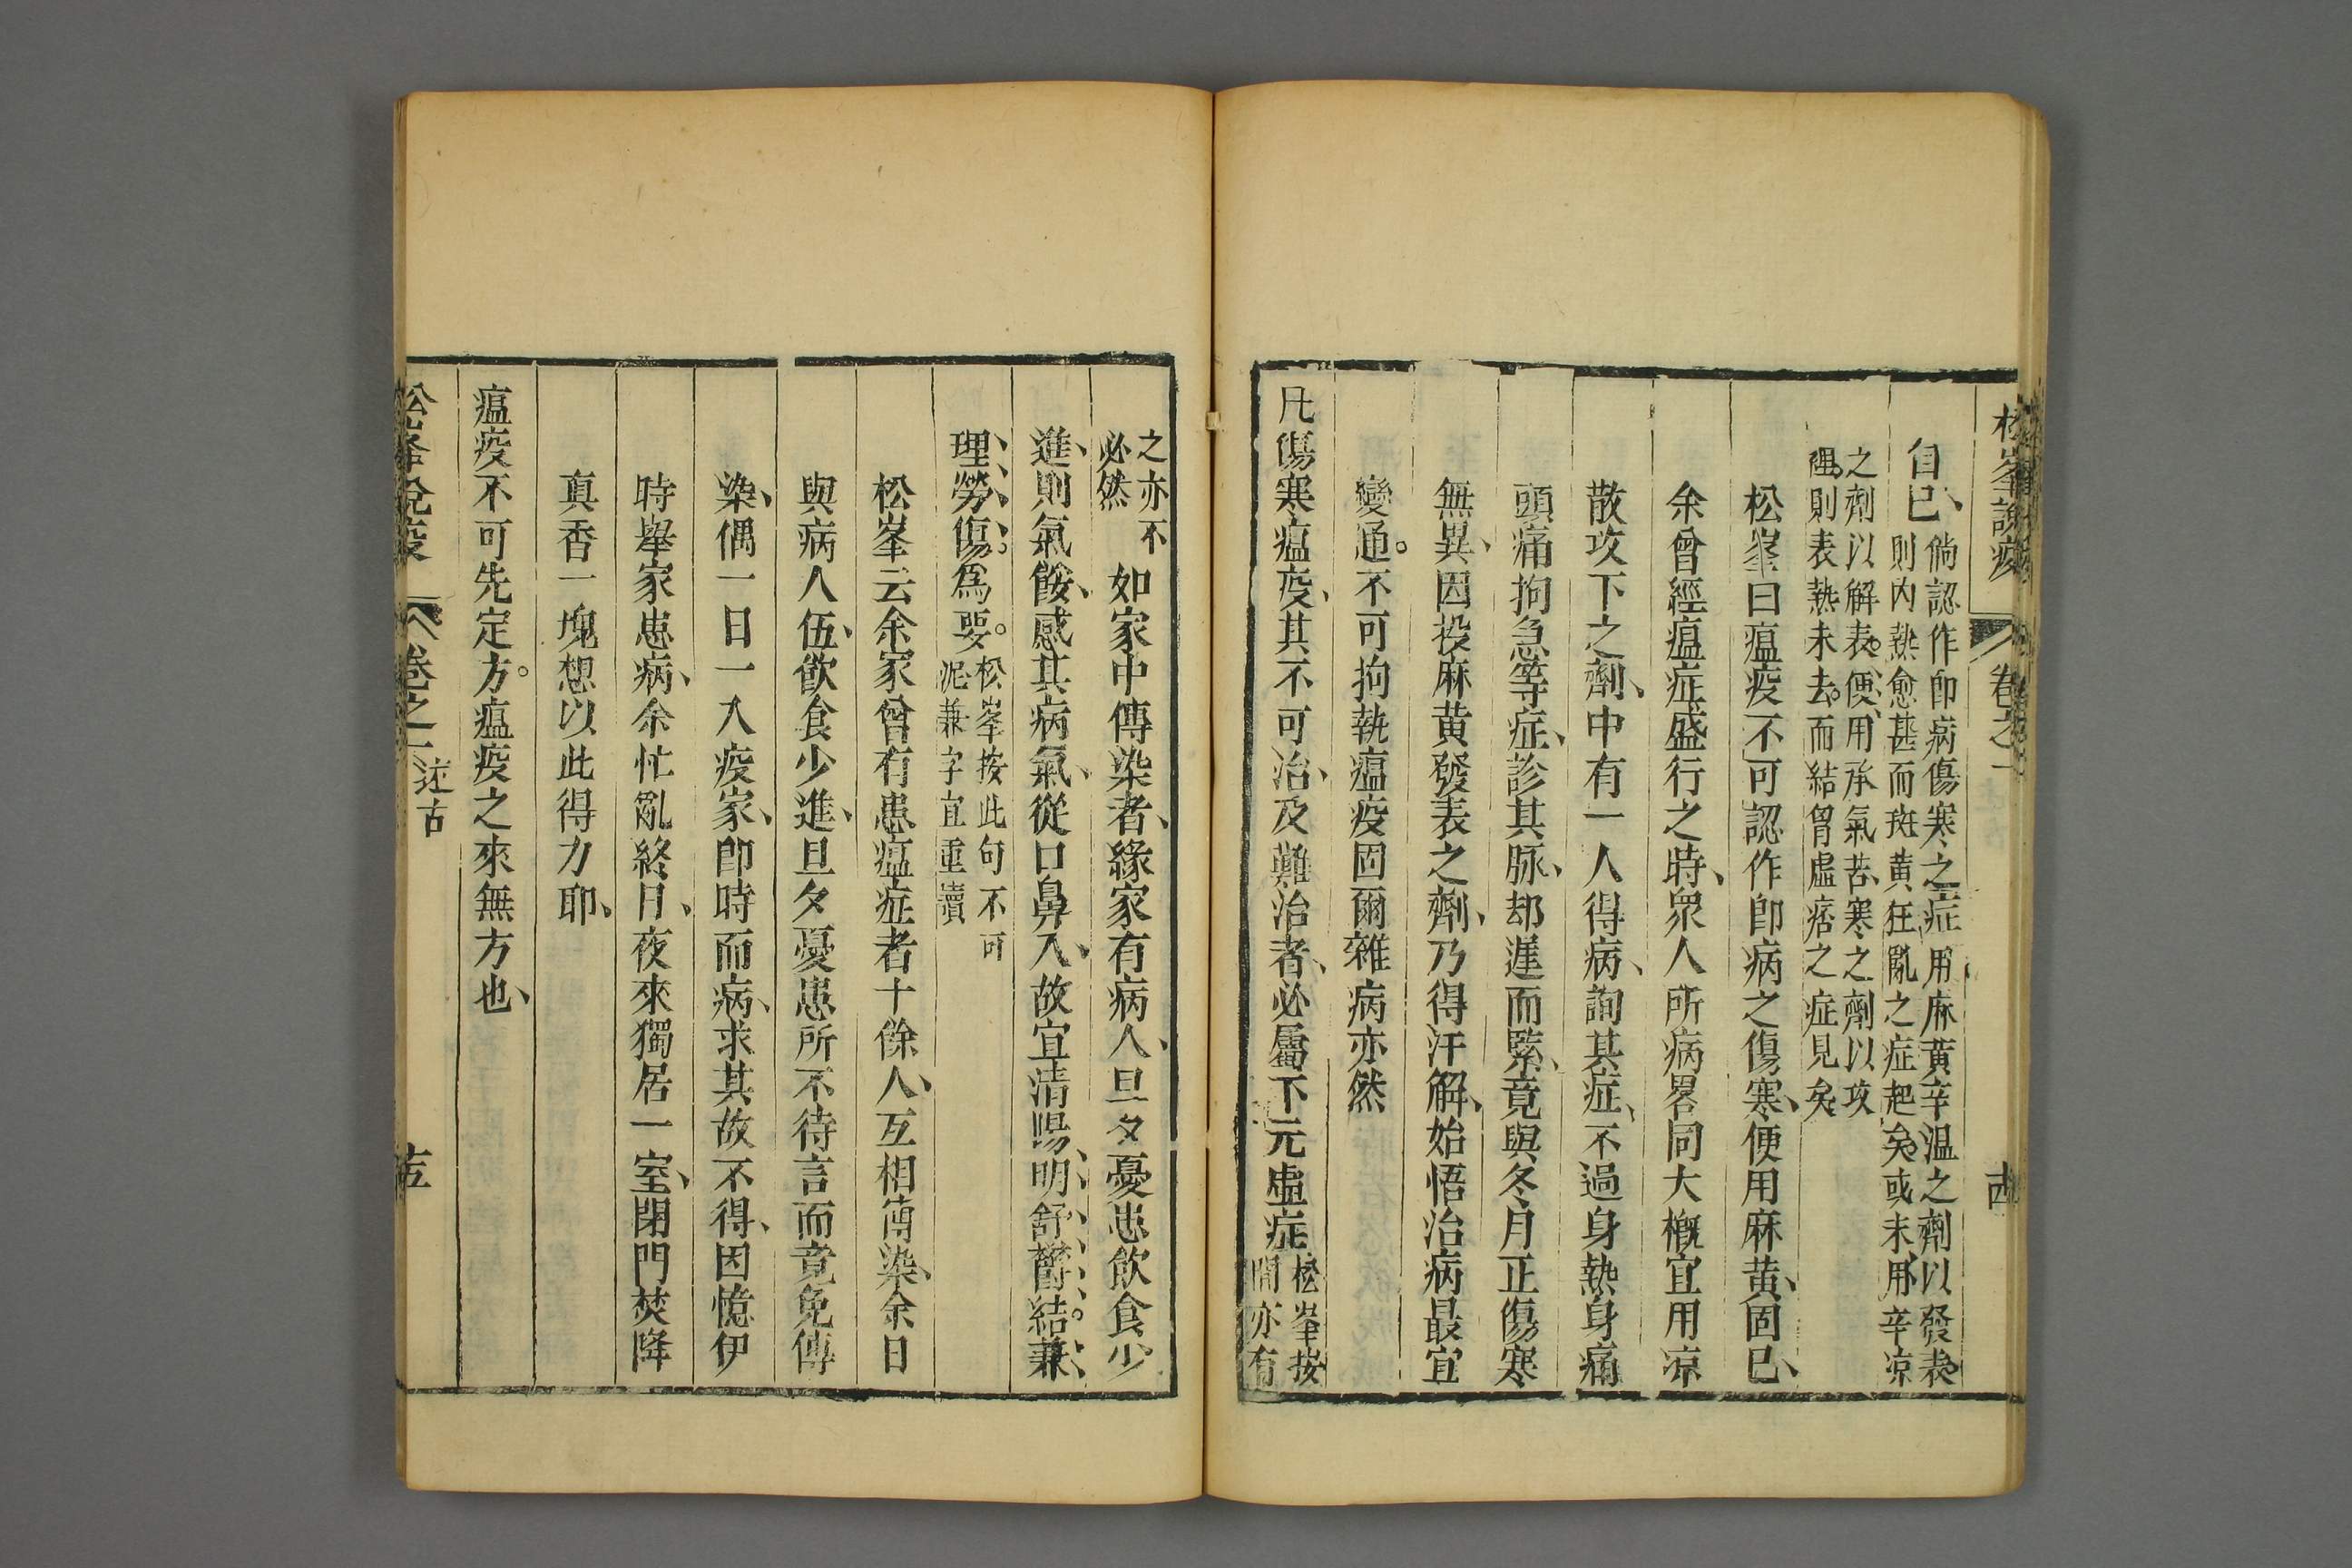 松峯說疫　卷之一
自已、倘認作卽病傷寒之症、用麻黃辛温之劑以發表
則內熱愈甚而斑黃狂亂之症起矣。或未用辛凉
之劑以解表。便用承氣苦寒之劑以攻
裡。則表熱未去。而結胷虛痞之症見矣
松峯曰瘟疫不可認作卽病之傷寒、便用麻黃、固已、
余曾經瘟症盛行之時、眾人所病畧同大槪宜用凉
散攻下之劑、中有一人得病、詢其症、不過身熱身痛
頭痛拘急等症、診其脉、却遲而緊、竟與冬月正傷寒
無異、因投麻黃發表之劑、乃得汗解、始悟治病最宜
變通。不可拘執瘟疫固爾雜病亦然
凡傷寒瘟疫、其不可治、及難治者、必屬下元虛症、松峯按
間亦有
之亦不
必然
如家中傳染者、緣家有病人、旦夕憂患飲食少
進、則氣餒、感其病氣、從口鼻入、故宜清陽、明、舒、鬱、結。兼、
理、勞、傷。為要。松峯按此句不可
泥兼字宜重讀
松峯云余家曾有患瘟症者十餘人、互相傳染、余日
與病人伍、飲食少進、旦夕憂患所不待言而竟免傳
染、偶一日一入疫家、卽時而病、求其故不得、因憶伊
時舉家患病、余忙亂終日、夜來獨居一室、閉門焚降
真香一塊想以此得力耶、
瘟疫不可先定方。瘟疫之來無方也、
松峯說疫　卷之一　述古